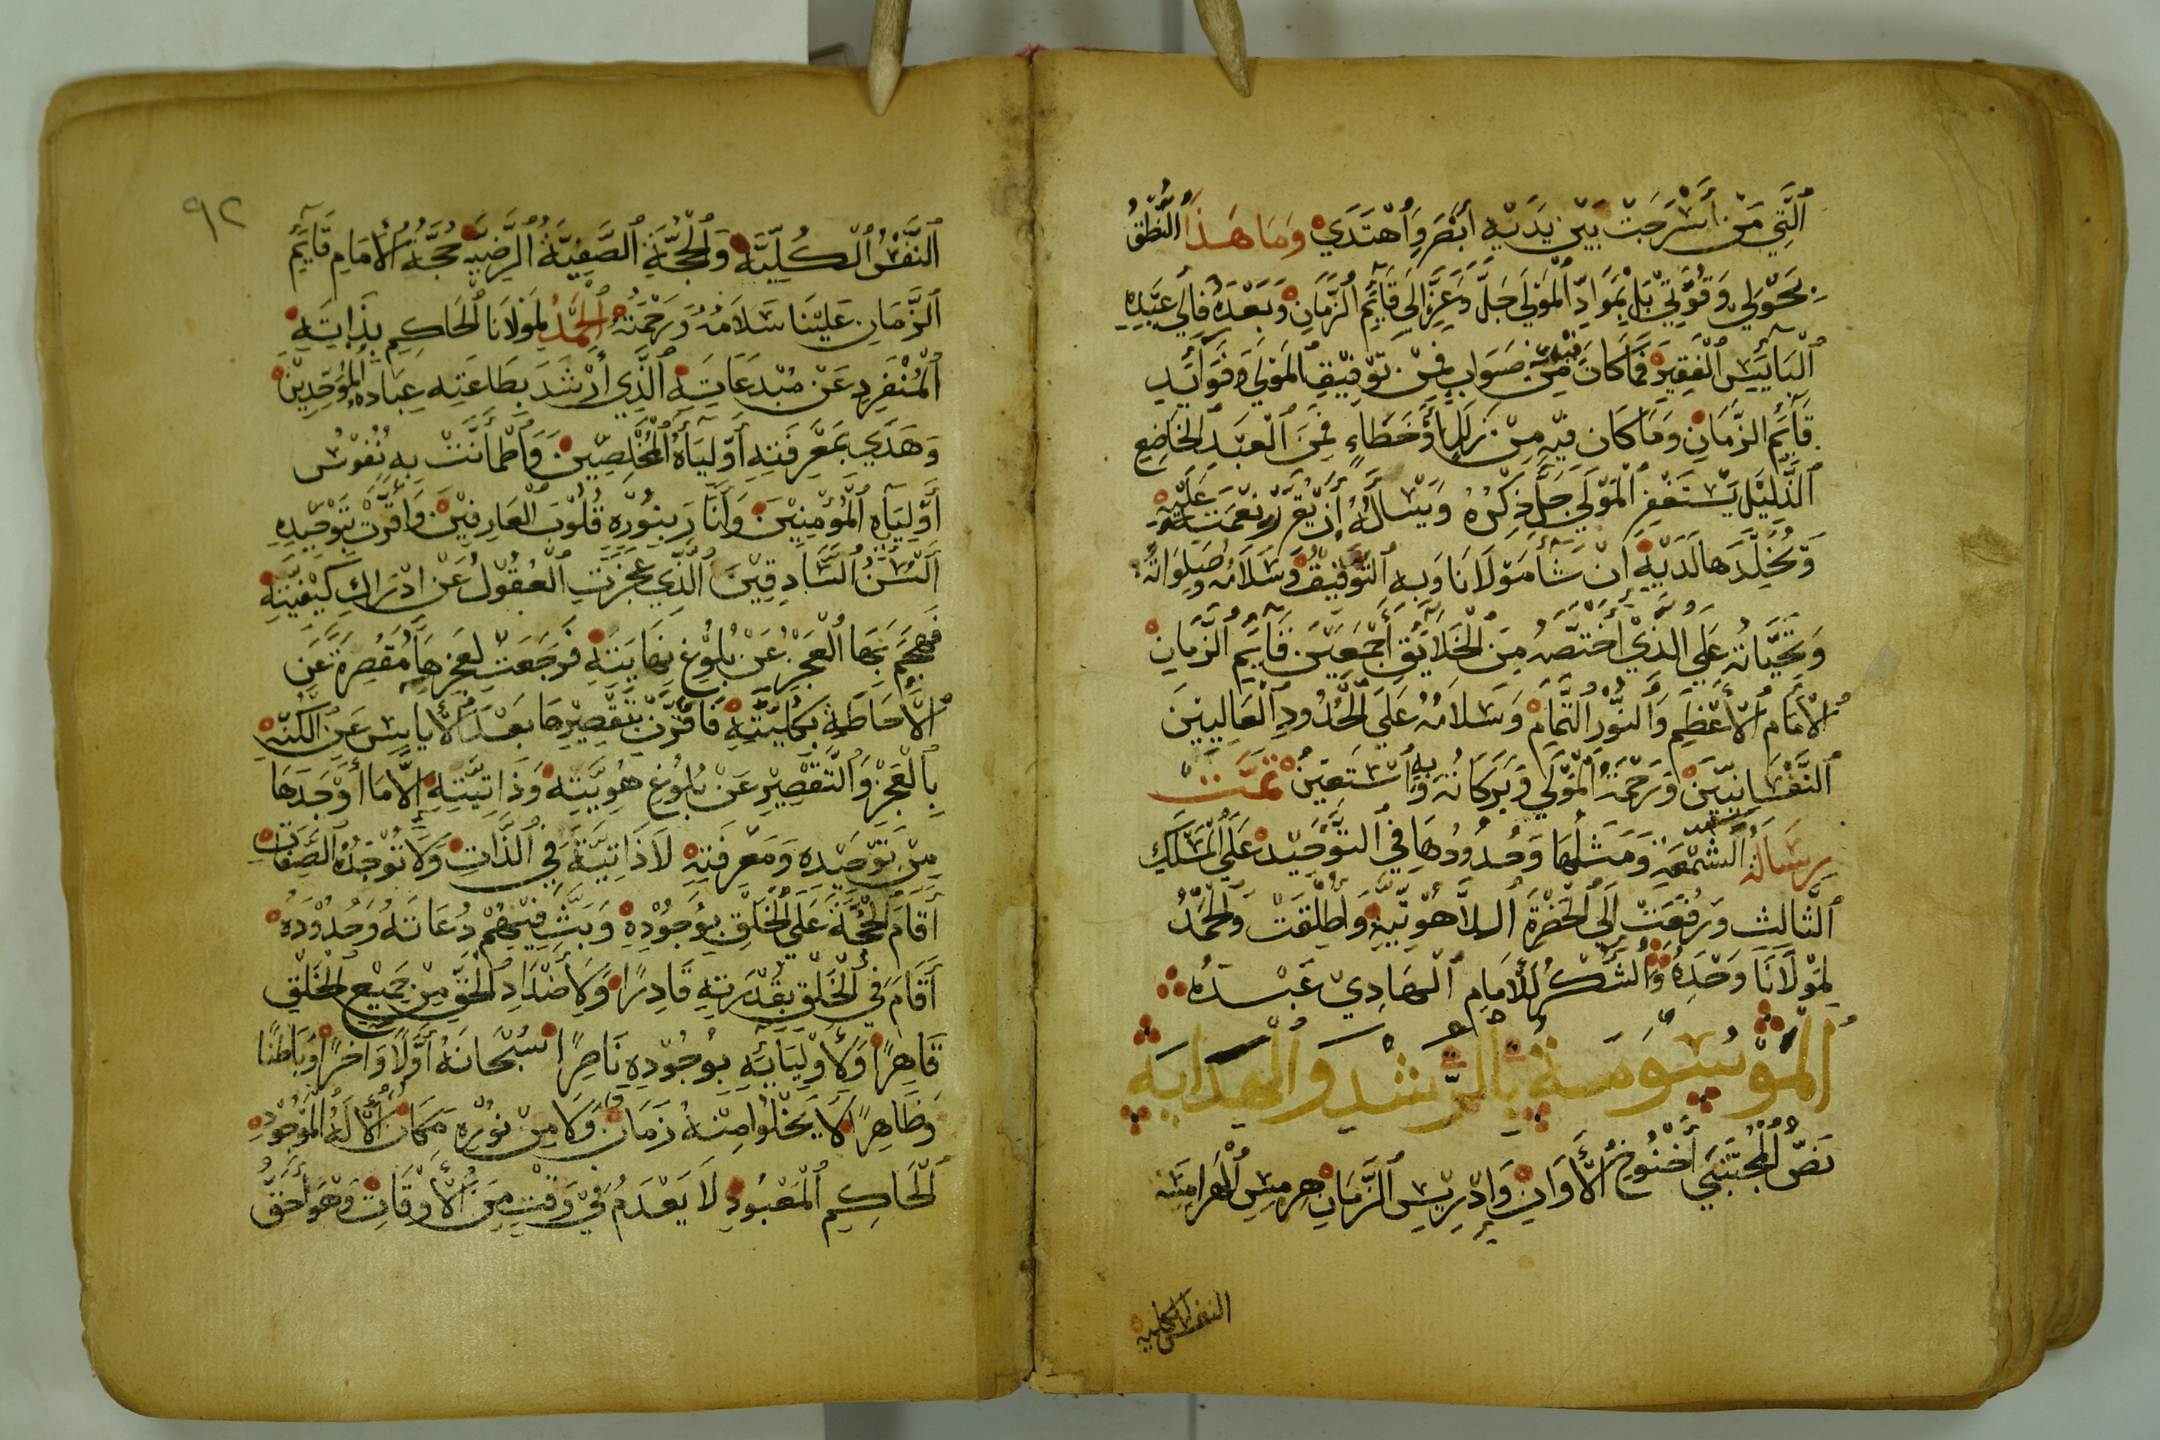 ٱلَّتِي مَنْ أَسْرَجَتْ بَيْنَ يَدَيْهِ أَبْصَرَ وَٱهْتَدَي وَمَا هَذَا ٱلنُّطْقُ
بِحَوْلِي وَقُوَّتِي بَلْ بِمَوَادِّ ٱلْمَوْلَي جَلَّ وَعَزَّ إِلَي قَآيِمِ ٱلزَّمَانِ وَبَعْدَهُ فَإِلَي عَبْدِهِ
ٱلْبَآيِسِ ٱلْفَقِيرِ فَمَا كَانَ فِيْهِ مِنْ صَوَابٍ فَمِنْ تَوْفِيقِ ٱلْمَوْلَي وَفَوَآيِدِ
قَآيِمِ الزَّمَانِ وَمَا كَانَ فِيْهِ مِنْ زَلَلٍ أَوْ خَطَاءٍ فَمِنَ ٱلْعَبْدِ الْخَاضِعِ
ٱلذَّلِيْلِ يَسْتَغْفِرُ ٱلْمَوْلَي جَلَّ ذِكْرُهُ وَيَسْأَلُهُ أَنْ يُقَرِّرَ نِعْمَتَهُ عَلَيْهِ
وَيُخَلِّدَهَا لَدَيْهِ إِنْ شَآءَ مَوْلَانَا وَبِهِ ٱلتَّوْفِيْقُ وَسَلَامُهُ وَصَلَوَاتُهُ
وَتَحِيَّاتُهُ عَلَي الَّذِيْ أَخْتَصَّهُ مِنَ ٱلْخَلَآيِقِ أَجْمَعِيْنَ قَآيِمِ ٱلزَّمَانِ
ٱلْأِمَامِ ٱلْأَعْظَمِ وَٱلنُّوْرِ ٱلتَّمَامِ وَسَلَامُهُ عَلَي ٱلْحُدُودِ ٱلْعَالِيِيْنَ
ٱلنَّفْسَانِيِّيْنَ وَرَحْمَةُ ٱلْمَوْلَي وَبَرَكَاتُهُ وَبِهِ ٱسْتَعِيْنُ تَمَّتْ
رِسَالَةُ ٱلشَّمْعَةِ وَمَثَلُهَا وَحُدُوْدُهَا فِي التَّوْحِيْدِ عَلَي ٱلْمَسْلَكِ
ٱلثَّالِثِ وَرُفِعَتْ إِلَي ٱلْحَضْرَةِ ٱللَّاهُوْتِيَّةِ وَأُطْلِقَتْ وَٱلْحَمْدُ
لِمَوْلَانَا وَحْدَهُ وَٱلشُّكْرُ لِلْأِمَامِ ٱلْهَادِيْ عَبْدُهُ
ٱلْمَوْسُوْمَةُ بِالرُّشْدِ وَٱلْهِدَايَةِ
نَصُّ ٱلْمُجْتَبَي أَخْنُوخُ ٱلْأَوَانِ وَإِدْرِيسِ ٱلزَّمَانِ هِرْمِسِ ٱلْهَرَامِسَةِ
النفس الكليه
٩٢
ٱلنَّفْسُ ٱلْكُلِّيَّةِ وَٱلْحُجَّةِ ٱلصَّفِيَّةُ ٱلرَّضِيَّهِ حُجَّةُ ٱلْأِمَامِ قَآيِمِ
ٱلزَّمَانِ عَلَيْنَا سَلَامُهُ وَرَحْمَتُهُ ٱلْحَمْدُ لِمَوْلَانَا ٱلْحَاكِمِ بِذَاتِهِ
ٱلْمُنْفَرِدِ عَنْ مُبْدَعَاتِهِ ٱلَّذِي أَرْشَدَ بِطَاعَتِهِ عِبَادَهُ ٱلْمُوَحِّدِيْنَ
وَهَدَي بِمَعْرِفَتِهِ أَوْلِيَآءَهُ ٱلْمُخْلِصِيْنَ وَٱطْمَأَنَّتْ بِهِ نُفُوْسُ
أَوْلِيَآيِهِ ٱلْمُؤْمِنِيْنَ وَأَنَارَ بِنُوْرِهِ قُلُوْبَ ٱلْعَارِفِيْنَ وَأَقَرَّتْ بِتَوْحِيْدِهِ
أَلْسُنُ ٱلسَّادِقِيْنَ ٱلَّذِي عَجَزَتِ ٱلْعُقُوْلُ عَنْ إِدْرَاكِ كَيْفِيَّتِهِ
فَهَجَمَ بِهَا ٱلْعَجْزُ عَنْ بُلُوْغِ نِهَايَتِهِ فَرَجَعَتْ لِعَجْزِهَا مُقْصِرَةً عَنِ
ٱلْأَحَاطَةِ بِكُلِّيَّتِهِ فَأَقَرَّتْ بِتَقْصِيْرِهَا بَعْدَ ٱلْأَيَاسِ عَنِ ٱلْكُنْهِ
بِٱلْعَجْزِ وَٱلتَّقْصِيْرِ عَنْ بُلُوْغِ هُوِيَّتِهِ وَذَاتِيَّتِهِ إِلَّا مَا أَوْجَدَهَا
مِنْ تَوْحِيْدِهِ وَمَعْرِفَتِهِ لَا ذَاتِيَّةً فِي ٱلذَّاتِ وَلَا تُوْجَدُهُ ٱلصِّفَاتُ
أَقَامَ ٱلْحُجَّةَ عَلَي ٱلْخَلْقِ بِوُجُوْدِهِ وَبَثَّ فِيْهِمْ دُعَاتَهُ وَحُدُوْدَهُ
أَقَامَ فِي ٱلْخَلْقِ بِقُدْرَتِهِ قَادِرًا وَلِأَضْدَادِ ٱلْحَقِّ مِنْ جَمِيْعِ ٱلْخَلْقِ
قَاهِرًا وَلِأَوْلِيَآيِهِ بِوُجُوْدِهِ نَاصِرًا سُبْحَانَهُ أَوَّلًا وَآخِرًا وَبَاطِنًا
وَظَاهِرًا لَا يَخْلُوا مِنْهُ زَمَانٌ وَلَا مِنْ نُوْرِهِ مَكَانٌ ٱلْأِلَهُ ٱلْمَوْجُوْدِ
ٱلْحَاكِمِ ٱلْمَعْبُودِ لَا يَعْدَمُ فِيْ وَقْتٍ مِنَ ٱلْأَوْقَاتِ وَهُوَ أَحَقُّ